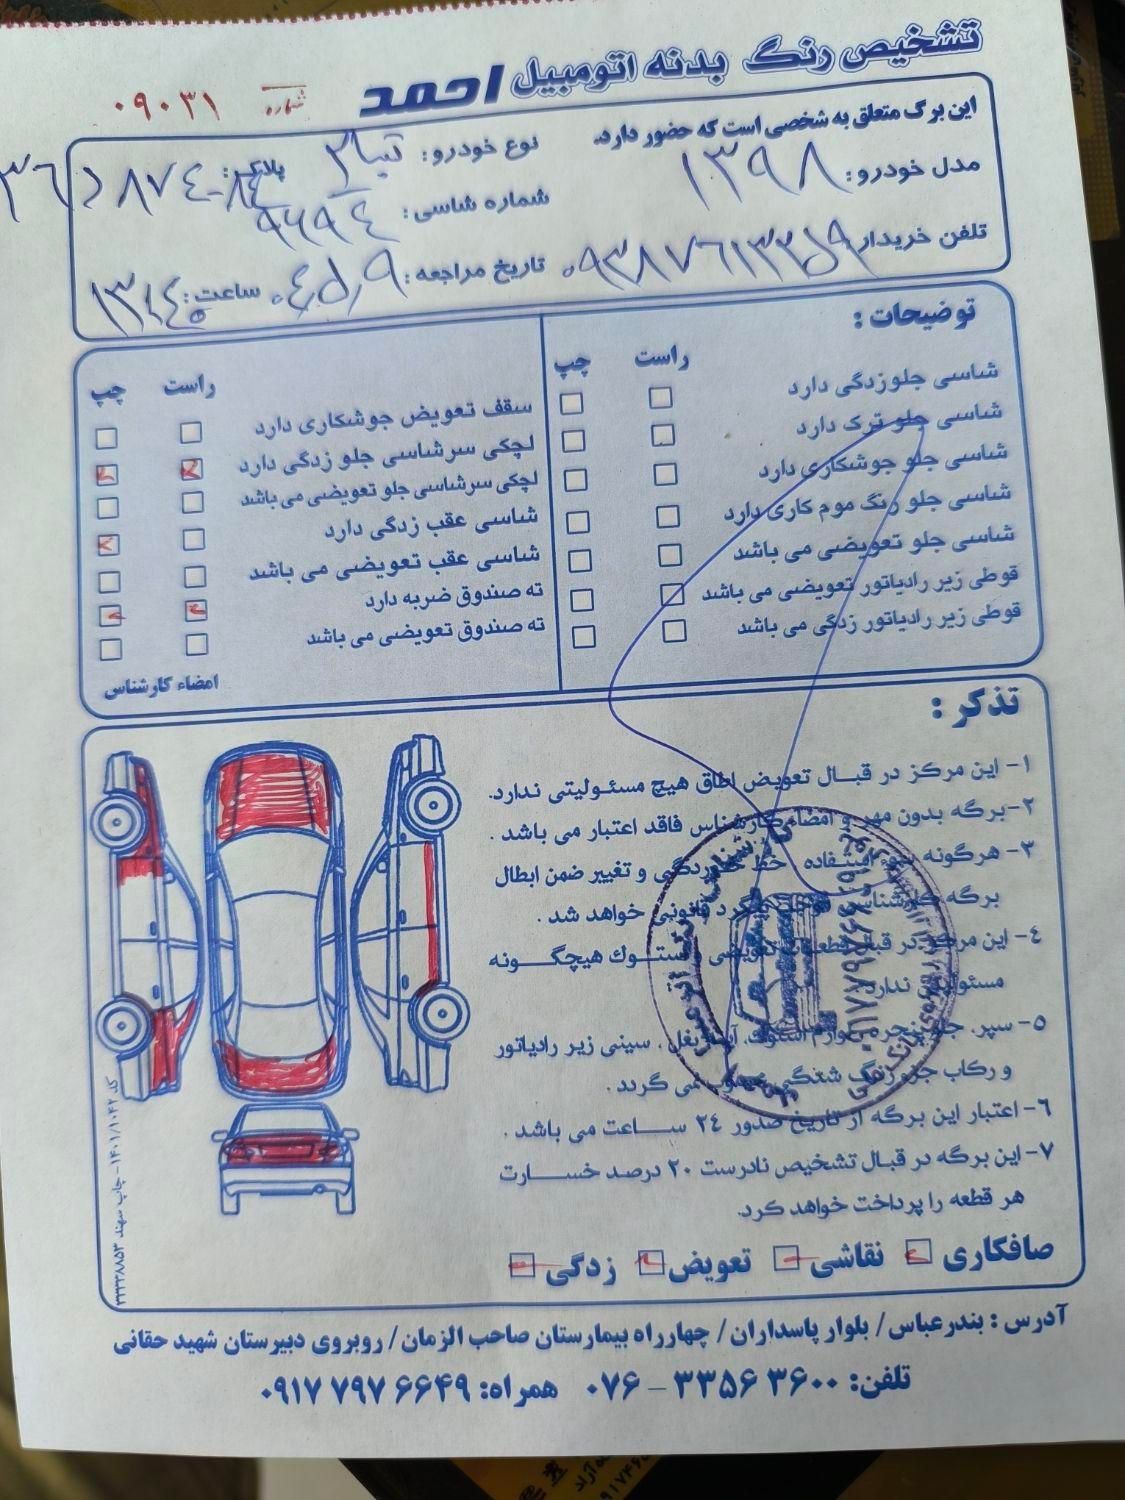 تشخیص رنگ بدنه اتومبیل احمد
شماره ۰۹۰۳۱
این برگ متعلق به شخصی است که حضور دارد.
نوع خودرو: تیبا ۲
پلاک: ۸۷۴-۸۴
مدل خودرو: ۱۳۹۸
شماره شاسی: ۹۶۹۴
تلفن خریدار ۰۹۳۸۷۶۱۳۳۵۹
تاریخ مراجعه: ۰۴,۵,۹
ساعت:
توضیحات:
راست چپ
شاسی جلوزدگی دارد
شاسی جلو ترک دارد
شاسی جلو جوشکاری دارد
شاسی جلو رنگ موم کاری دارد
شاسی جلو تعویضی می باشد
قوطی زیر رادیاتور تعویضی می باشد
قوطی زیر رادیاتور زدگی می باشد
راست چپ
سقف تعویض جوشکاری دارد
لچکی سرشاسی جلو زدگی دارد
لچکی سرشاسی جلو تعویضی می باشد
شاسی عقب زدگی دارد
شاسی عقب تعویضی می باشد
ته صندوق ضربه دارد
ته صندوق تعویضی می باشد
امضاء کارشناس
تذکر:
۱- این مرکز در قبال تعویض اطاق هیچ مسئولیتی ندارد.
۲- برگه بدون مهر و امضاء کارشناس فاقد اعتبار می باشد.
۳- هرگونه سوء استفاده خط خوردگی و تغییر ضمن ابطال
برگه کارشناسی پیگرد قانونی خواهد شد.
۴- این مرکز در قبال قطعات تعویضی و استوک هیچگونه
مسئولیتی ندارد
۵- سپر، جلو پنجره، لوازم استوک، آینه بغل، سینی زیر رادیاتور
و رکاب جزو رنگ شدگی محسوب نمی گردد.
۶- اعتبار این برگه از تاریخ صدور ۲۴ ساعت می باشد.
۷- این برگه در قبال تشخیص نادرست ۲۰ درصد خسارت
هر قطعه را پرداخت خواهد کرد.
صافکاری نقاشی تعویض زدگی
کد ۱۴۰۱/۱۰۴۲ - چاپ سهند ۳۲۲۲۸۸۵۳
آدرس: بندرعباس/ بلوار پاسداران/ چهارراه بیمارستان صاحب الزمان/ روبروی دبیرستان شهید حقانی
تلفن: ۳۶۰۰ ۳۳۵۶ - ۰۷۶ همراه: ۶۶۴۹ ۷۹۷ ۰۹۱۷